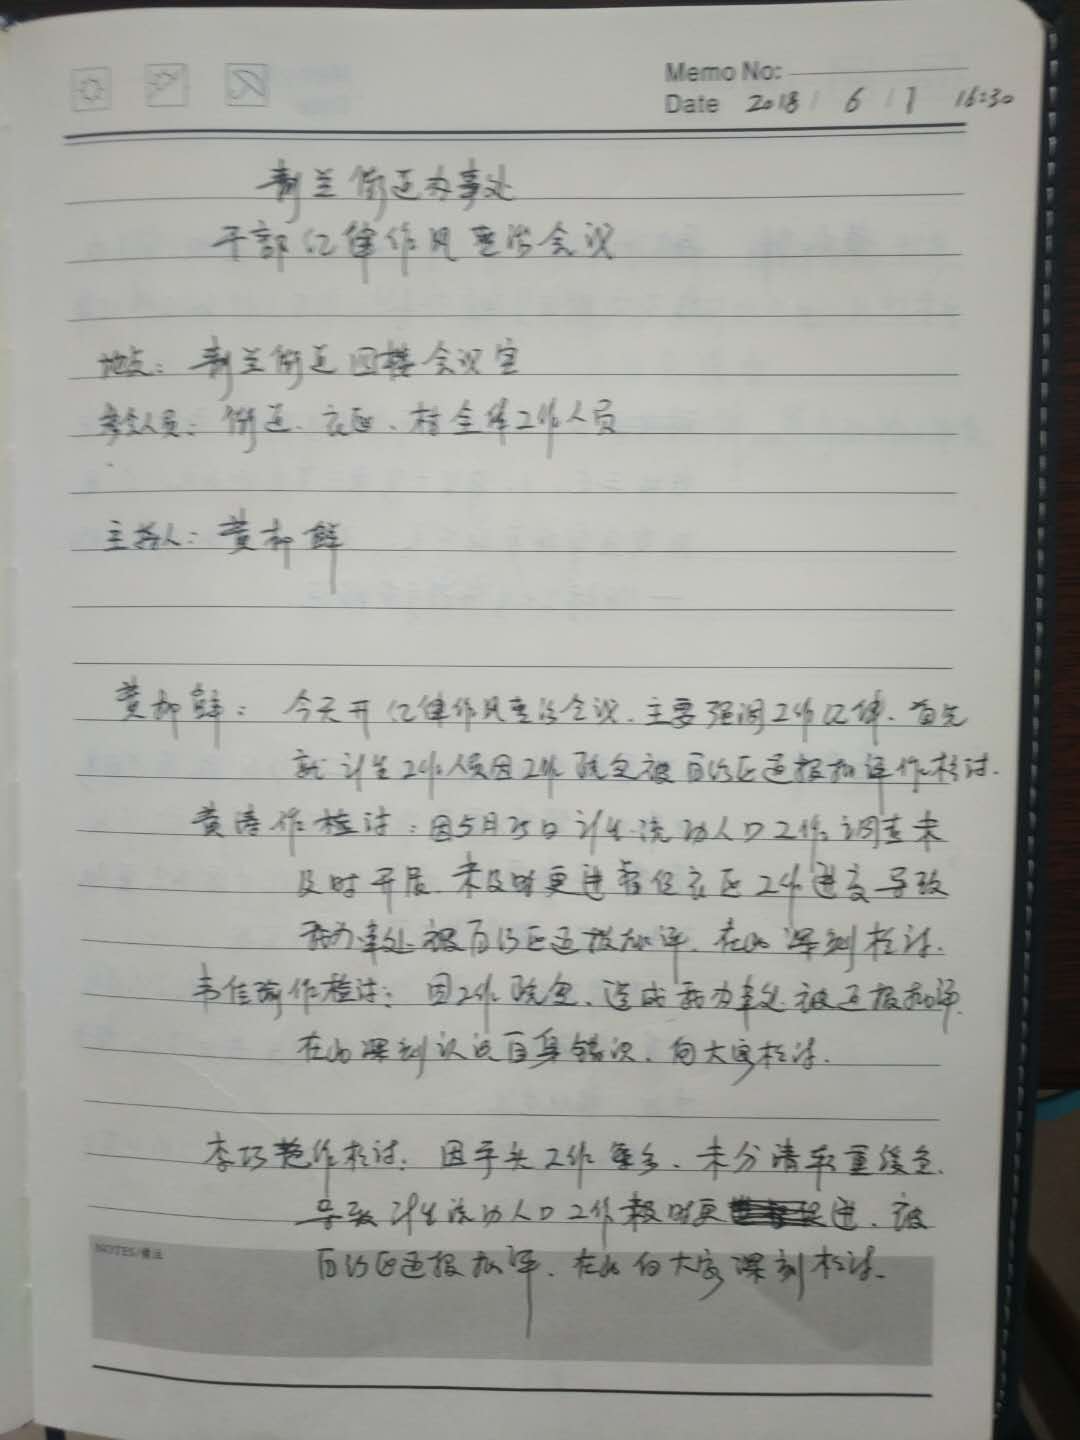 Memo No:
Date 2018 / 6 / 1 16:30
制兰街道办事处
干部纪律作风整治会议
地点：制兰街道四楼会议室
参会人员：街道、社区、村全体工作人员
主持人：黄柳鲜
黄柳鲜：今天开纪律作风整治会议，主要强调工作纪律，首先
就计生工作人员因工作疏忽被百色区通报批评作检讨.
黄涛作检讨：因5月25日计生流动人口工作调查未
及时开展，未及时更进督促社区工作进度导致
我办事处被百色区通报批评，在此深刻检讨.
韦佳瑜作检讨：因工作疏忽，造成我办事处被通报批评，
在此深刻认识自身错误，向大家检讨.
李巧艳作检讨：因手头工作繁多，未分清轻重缓急，
导致计生流动人口工作 时更进，被
NOTES/备忘
通报批评，在此向大家深刻检讨.